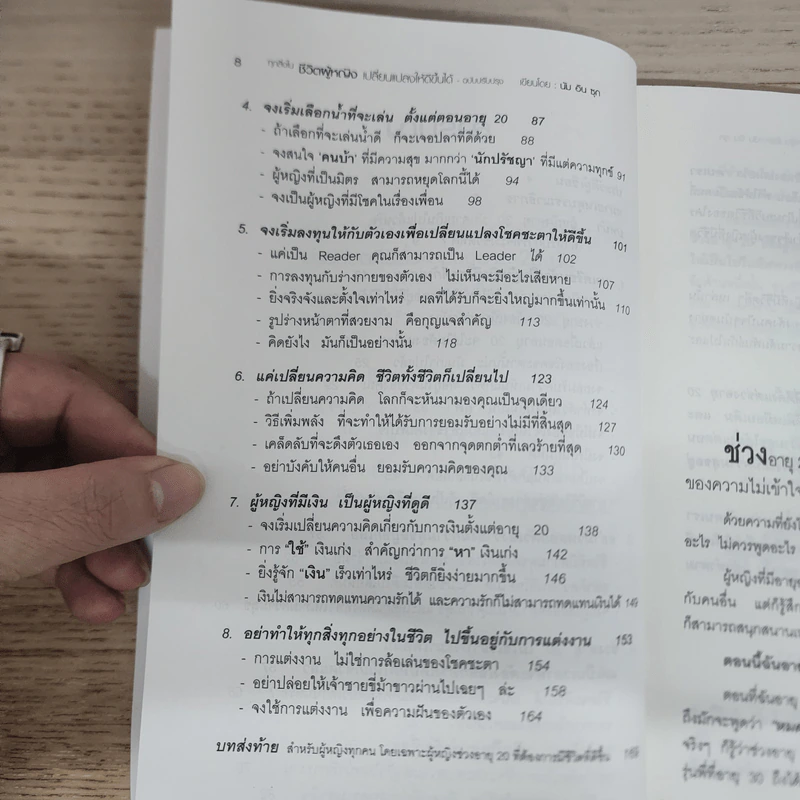 8 ทุกสิ่งใน ชีวิตผู้หญิง เปลี่ยนแปลงให้ดีขึ้นได้ - ฉบับปรับปรุง เขียนโดย : นัม อิน ซุก
4. จงเริ่มเลือกน้ำที่จะเล่น ตั้งแต่ตอนอายุ 20 87
- ถ้าเลือกที่จะเล่นน้ำดี ก็จะเจอปลาที่ดีด้วย 88
- จงสนใจ 'คนบ้า' ที่มีความสุข มากกว่า 'นักปรัชญา' ที่มีแต่ความทุกข์ 91
- ผู้หญิงที่เป็นมิตร สามารถหยุดโลกนี้ได้ 94
- จงเป็นผู้หญิงที่มีโชคในเรื่องเพื่อน 98
5. จงเริ่มลงทุนให้กับตัวเองเพื่อเปลี่ยนแปลงโชคชะตาให้ดีขึ้น 101
- แค่เป็น Reader คุณก็สามารถเป็น Leader ได้ 102
- การลงทุนกับร่างกายของตัวเอง ไม่เห็นจะมีอะไรเสียหาย 107
- ยิ่งจริงจังและตั้งใจเท่าไหร่ ผลที่ได้รับก็จะยิ่งใหญ่มากขึ้นเท่านั้น 110
- รูปร่างหน้าตาที่สวยงาม คือกุญแจสำคัญ 113
- คิดยังไง มันก็เป็นอย่างนั้น 118
6. แค่เปลี่ยนความคิด ชีวิตทั้งชีวิตก็เปลี่ยนไป 123
- ถ้าเปลี่ยนความคิด โลกก็จะหันมามองคุณเป็นจุดเดียว 124
- วิธีเพิ่มพลัง ที่จะทำให้ได้รับการยอมรับอย่างไม่มีที่สิ้นสุด 127
- เคล็ดลับที่จะดึงตัวเธอเอง ออกจากจุดตกต่ำที่เลวร้ายที่สุด 130
- อย่าบังคับให้คนอื่น ยอมรับความคิดของคุณ 133
7. ผู้หญิงที่มีเงิน เป็นผู้หญิงที่ดูดี 137
- จงเริ่มเปลี่ยนความคิดเกี่ยวกับการเงินตั้งแต่อายุ 20 138
- การ "ใช้" เงินเก่ง สำคัญกว่าการ "หา" เงินเก่ง 142
- ยิ่งรู้จัก "เงิน" เร็วเท่าไหร่ ชีวิตก็ยิ่งง่ายมากขึ้น 146
- เงินไม่สามารถทดแทนความรักได้ และความรักก็ไม่สามารถทดแทนเงินได้ 149
8. อย่าทำให้ทุกสิ่งทุกอย่างในชีวิต ไปขึ้นอยู่กับการแต่งงาน 153
- การแต่งงาน ไม่ใช่การล้อเล่นของโชคชะตา 154
- อย่าปล่อยให้เจ้าชายขี่ม้าขาวผ่านไปเฉยๆ ล่ะ 158
- จงใช้การแต่งงาน เพื่อความฝันของตัวเอง 164
บทส่งท้าย สำหรับผู้หญิงทุกคน โดยเฉพาะผู้หญิงช่วงอายุ 20 ที่ต้องการมีชีวิตที่ดีขึ้น 169
ช่วงอายุ
ของความไม่เข้าใจ
ด้วยความที่ยัง
อะไร ไม่ควรพูดอะไร
ผู้หญิงที่มีอายุ
กับคนอื่น แต่ก็รู้สึก
ก็สามารถสนุกสนาน
ตอนนี้ฉันอายุ
ตอนที่ฉันอายุ
ถึงมักจะพูดว่า
จริงๆ ก็รู้ว่าช่วงอายุ
รุ่นพี่ที่อายุ 30 ถึงได้